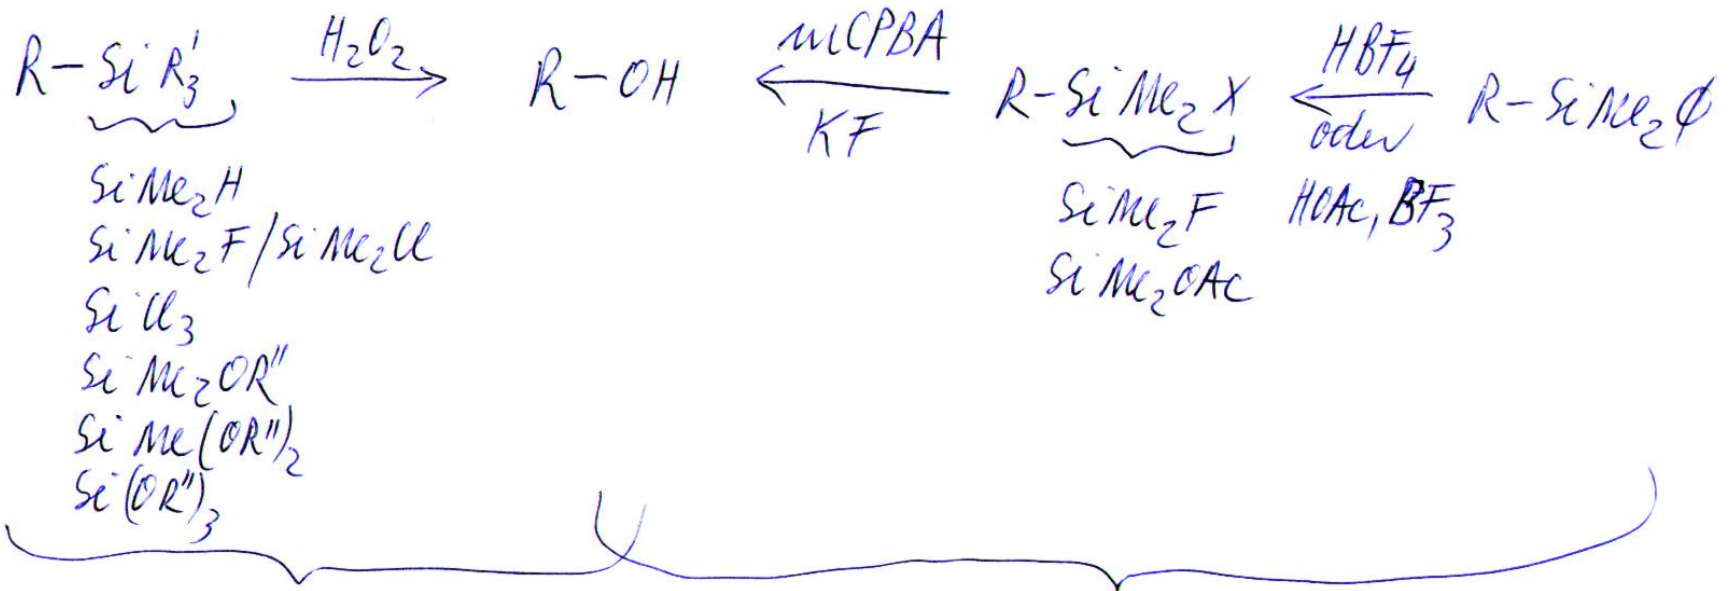 R-SiR'₃ H₂O₂ → R-OH ← mCPBA KF R-SiMe₂X ← HBF₄ oder HOAc, BF₃ R-SiMe₂Ø
SiMe₂H
SiMe₂F/SiMe₂Cl
SiCl₃
SiMe₂OR"
SiMe(OR")₂
Si(OR")₃
SiMe₂F
SiMe₂OAc